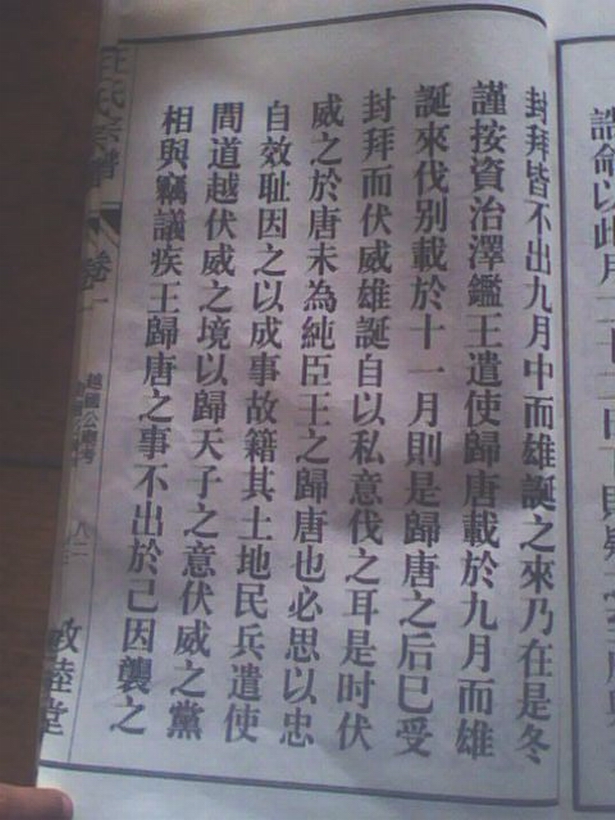 封拜皆不出九月中而雄誕之來乃在是冬
謹按資治澤鑑王遣使歸唐載於九月而雄
誕來伐别載於十一月則是歸唐之后已受
封拜而伏威雄誕自以私意伐之耳是时伏
威之於唐未為純臣王之歸唐也必思以忠
自效耻因之以成事故籍其土地民兵遣使
間道越伏威之境以歸天子之意伏威之黨
相與竊議疾王歸唐之事不出於己因襲之
汪氏宗譜
卷一
越國公
敦睦堂